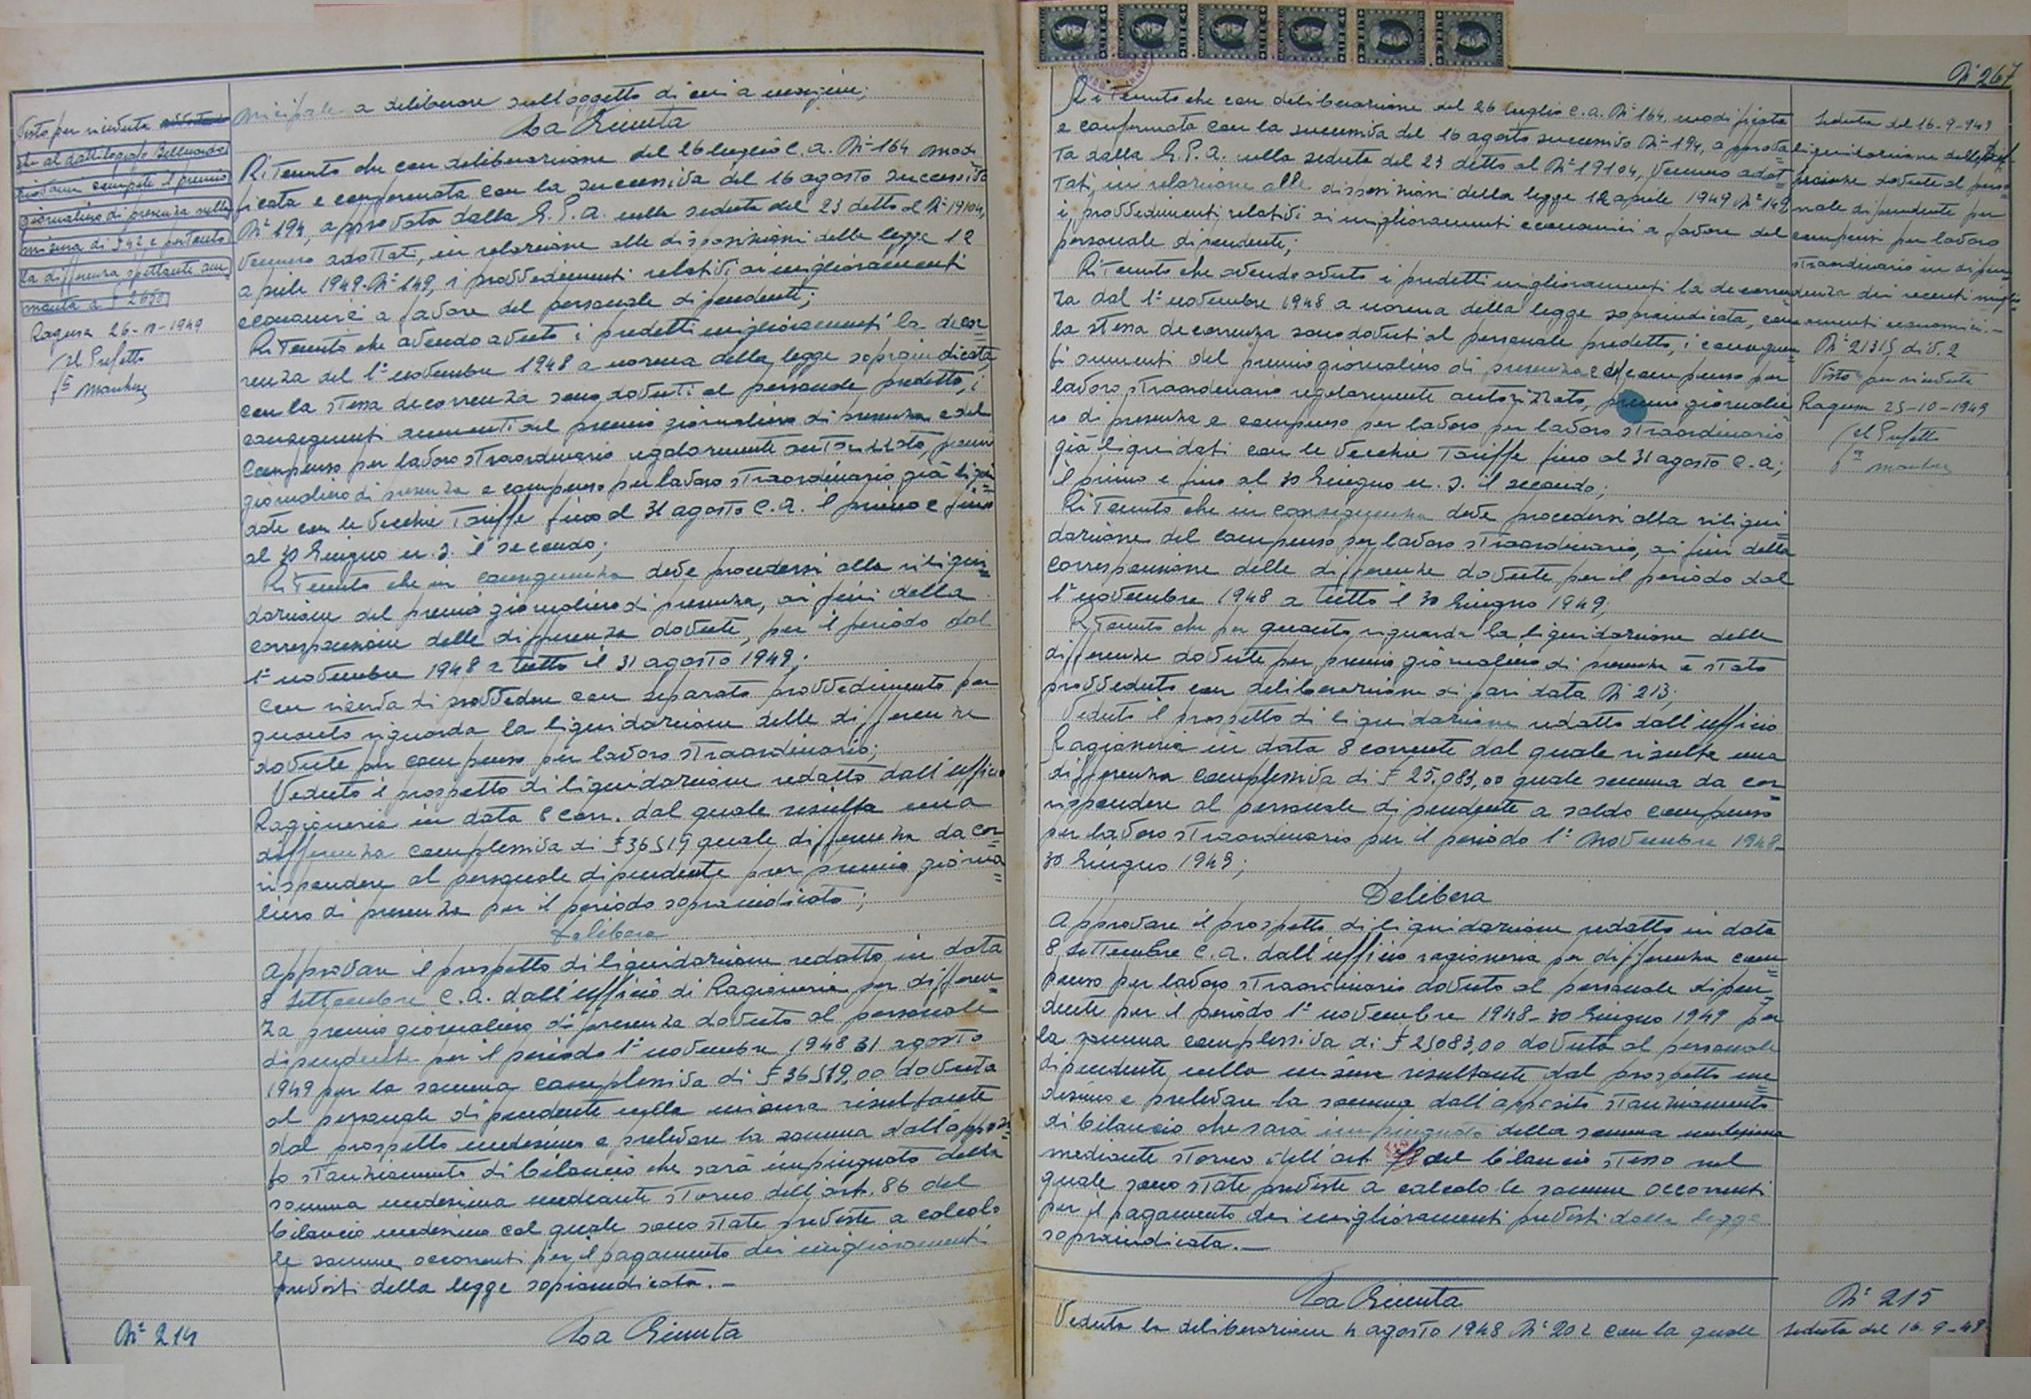 Visto per ricevuta
che al dattilografo Belluardo
giornaliero di presenza nella
misura di £ 42 e pertanto
la differenza spettante am
monta a £ 2650
Ragusa 26-11-1949
Il Prefetto
nicipale a deliberare sull'oggetto di cui a margine;
La Giunta
Ritenuto che con deliberazione del 26 luglio c.a. N° 164 modi
ficata e confermata con la successiva del 16 agosto successivo
N° 194, approvata dalla G.P.A. nella seduta del 23 detto al N° 19104,
vennero adottati, in relazione alle disposizioni della legge 12
aprile 1949 N° 149, i provvedimenti relativi ai miglioramenti
economici a favore del personale dipendente;
Ritenuto che avendo avuto i predetti miglioramenti la decor
renza del 1° novembre 1948 a norma della legge sopraindicata,
con la stessa decorrenza sono dovuti al personale predetto, i
conseguenti aumenti del premio giornaliero di presenza e del
compenso per lavoro straordinario regolarmente autorizzato, premio
giornaliero di presenza e compenso per lavoro straordinario già liqui=
date con le vecchie tariffe fino al 31 agosto c.a. il primo e fino
al 30 Giugno u.s. il secondo;
Ritenuto che in conseguenza deve procedersi alla riliqui=
dazione del premio giornaliero di presenza, ai fini della
corresponsione delle differenze dovute, per il periodo dal
1° novembre 1948 a tutto il 31 agosto 1949;
con riserva di provvedere con separato provvedimento per
quanto riguarda la liquidazione delle differenze
dovute per compenso per lavoro straordinario;
Veduto il prospetto di liquidazione redatto dall'ufficio
Ragioneria in data 8 corr. dal quale risulta una
differenza complessiva di £ 36519 quale differenza da cor=
rispondere al personale dipendente per premio giorna=
liero di presenza per il periodo sopraindicato;
Delibera
Approvare il prospetto di liquidazione redatto in data
8 Settembre c.a. dall'ufficio di Ragioneria per differen=
za premio giornaliero di presenza dovuto al personale
dipendente per il periodo 1° novembre 1948 31 agosto
1949 per la somma complessiva di £ 36519,00 dovuta
al personale dipendente nella misura risultante
dal prospetto medesimo e prelevare la somma dall'apposi=
to stanziamento di bilancio che sarà impinguato della
somma medesima mediante storno dell'art. 86 del
bilancio medesimo col quale sono state previste a calcolo
le somme occorrenti per il pagamento dei miglioramenti
previsti della legge sopraindicata.-
N° 214
La Giunta
N° 267
Ritenuto che con deliberazione del 26 luglio c.a. N° 164, modificata
e confermata con la successiva del 16 agosto successivo N° 194, approva
ta dalla G.P.A. nella seduta del 23 detto al N° 19104, vennero adot=
tati, in relazione alle disposizioni della legge 12 aprile 1949 N° 149
i provvedimenti relativi ai miglioramenti economici a favore del
personale dipendente;
Ritenuto che avendo avuto i predetti miglioramenti la decorren
za dal 1° novembre 1948 a norma della legge sopraindicata, con
la stessa decorrenza sono dovuti al personale predetto, i conseguen
ti aumenti del premio giornaliero di presenza e del compenso per
lavoro straordinario regolarmente autorizzato, premio giornalie
ro di presenza e compenso per lavoro per lavoro straordinario
già liquidati con le vecchie tariffe fino al 31 agosto c.a;
il primo e fino al 30 Giugno u.s. il secondo;
Ritenuto che in conseguenza deve procedersi alla riliqui
dazione del compenso per lavoro straordinario, ai fini della
corresponsione delle differenze dovute per il periodo dal
1° novembre 1948 a tutto il 30 Giugno 1949;
Ritenuto che per quanto riguarda la liquidazione delle
differenze dovute per premio giornaliero di presenza è stato
provveduto con deliberazione di pari data N° 213;
Veduto il prospetto di liquidazione redatto dall'ufficio
Ragioneria in data 8 corrente dal quale risulta una
differenza complessiva di £ 25,083,00 quale somma da cor=
rispondere al personale dipendente a saldo compenso
per lavoro straordinario per il periodo 1° Novembre 1948-
30 Giugno 1949;
Delibera
Approvare il prospetto di liquidazione redatto in data
8 Settembre c.a. dall'ufficio ragioneria per differenza com=
penso per lavoro straordinario dovuto al personale dipen=
dente per il periodo 1° novembre 1948-30 Giugno 1949 per
la somma complessiva di £ 25083,00 dovuta al personale
dipendente nella misura risultante dal prospetto me
desimo e prelevare la somma dall'apposito stanziamento
di bilancio che sarà impinguato della somma medesima
mediante storno dell'art. del bilancio stesso nel
quale sono state previste a calcolo le somme occorrenti
per il pagamento dei miglioramenti previsti dalla legge
sopraindicata.-
La Giunta
Veduta la deliberazione 4 agosto 1948 N° 202 con la quale
Seduta del 16-9-949
liquidazione delle Dif
ferenze dovute al perso
nale dipendente per
compensi per lavoro
straordinario in dipen
denza dei recenti miglio
ramenti economici.-
N° 21315 div. 2
Visto per ricevuta
Ragusa 25-10-1949
Il Prefetto
N° 215
Seduta del 16-9-49